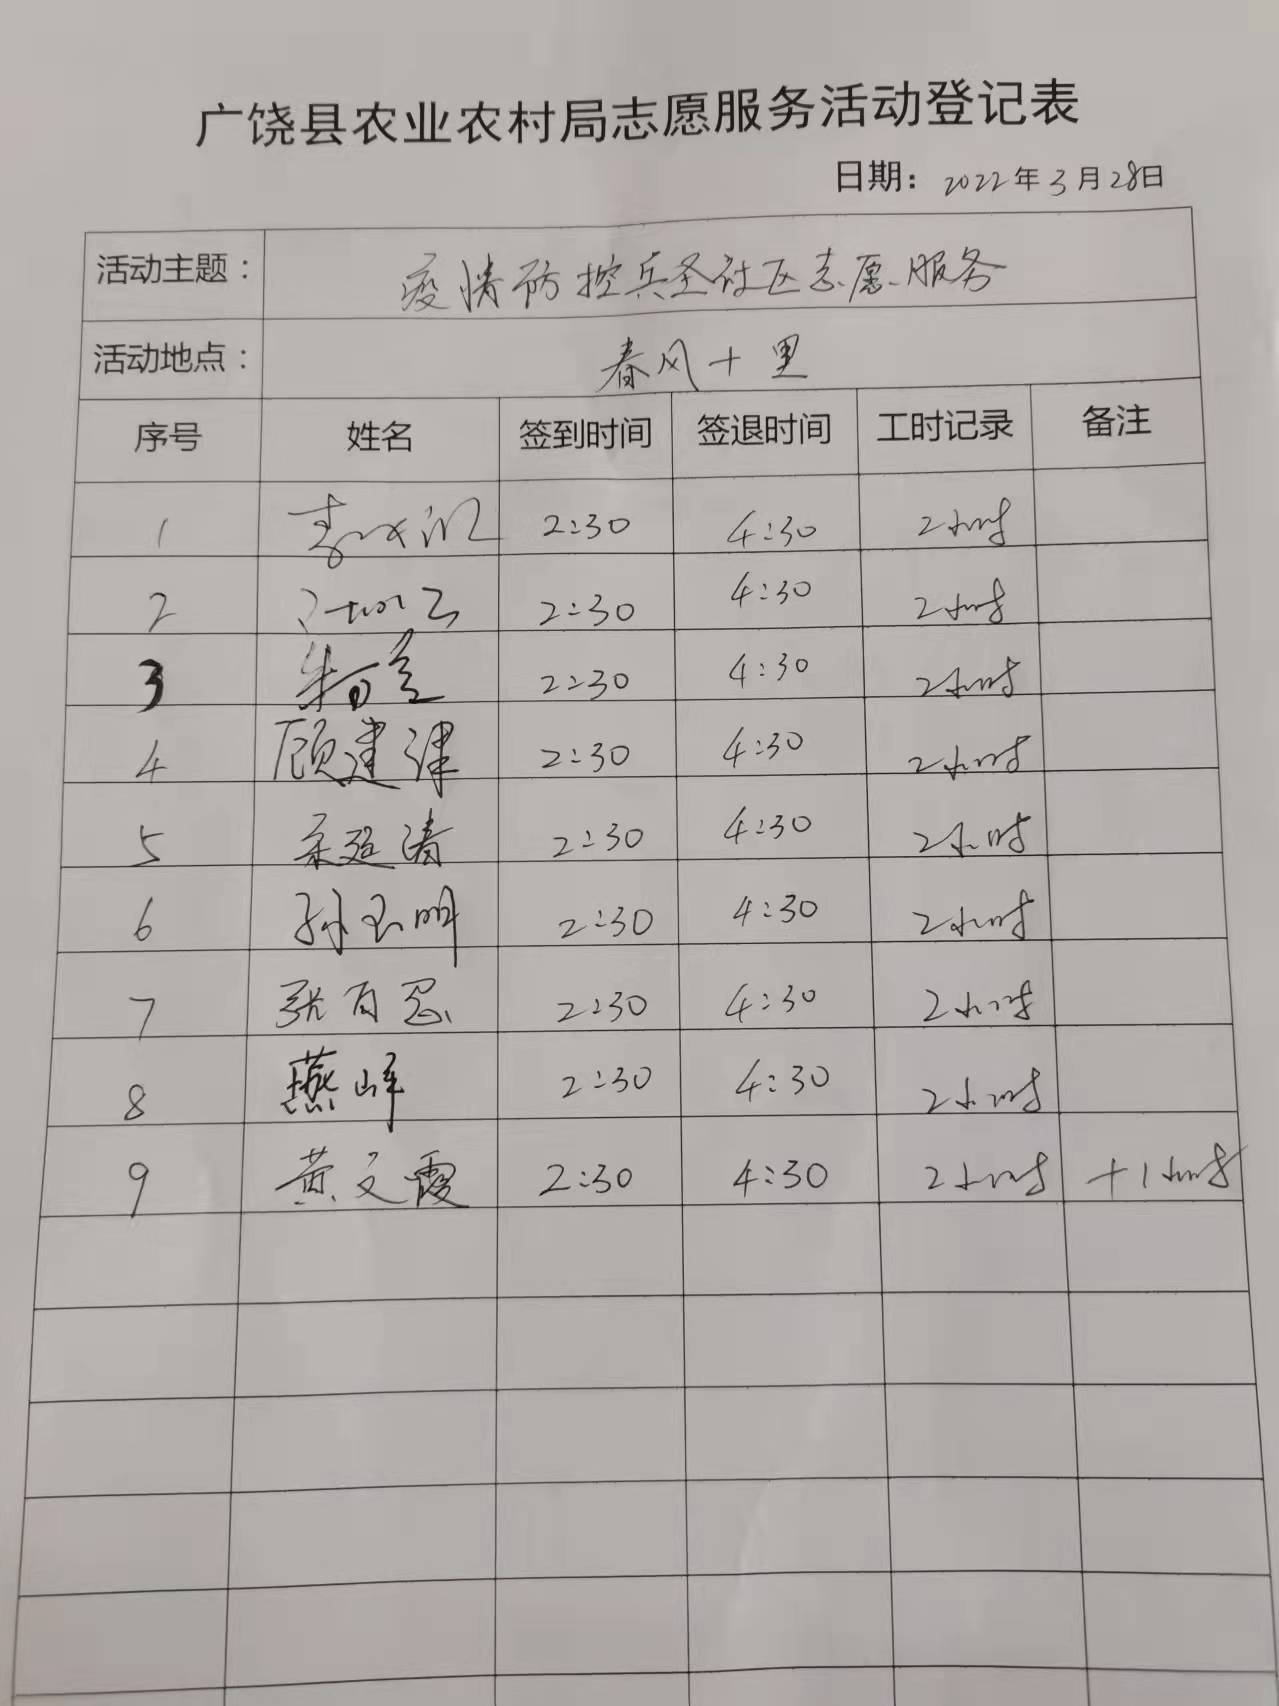 广饶县农业农村局志愿服务活动登记表
日期：2022年3月28日
活动主题： 疫情防控兵圣社区志愿服务
活动地点： 春风十里
序号 姓名 签到时间 签退时间 工时记录 备注
1 2:30 4:30 2小时
2 2:30 4:30 2小时
3 2:30 4:30 2小时
4 顾建津 2:30 4:30 2小时
5 2:30 4:30 2小时
6 孙玉明 2:30 4:30 2小时
7 张百忍 2:30 4:30 2小时
8 燕峰 2:30 4:30 2小时
9 黄文霞 2:30 4:30 2小时 +1小时